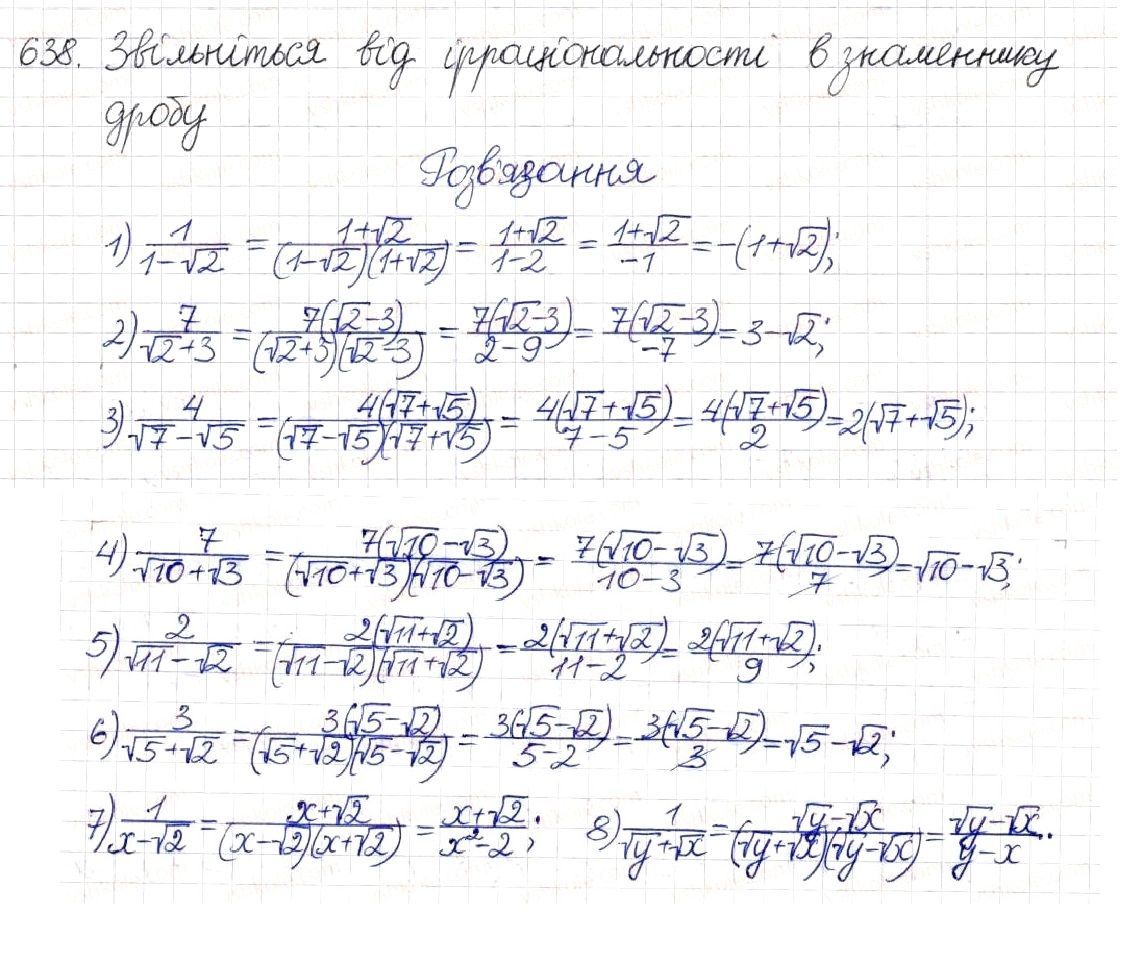 638. Звільніться від ірраціональності в знаменнику
дробу
Розв'язання
1) 1/(1-√2) = (1+√2)/((1-√2)(1+√2)) = (1+√2)/(1-2) = (1+√2)/(-1) = -(1+√2);
2) 7/(√2+3) = 7(√2-3)/((√2+3)(√2-3)) = 7(√2-3)/(2-9) = 7(√2-3)/(-7) = 3-√2;
3) 4/(√7-√5) = 4(√7+√5)/((√7-√5)(√7+√5)) = 4(√7+√5)/(7-5) = 4(√7+√5)/2 = 2(√7+√5);
4) 7/(√10+√3) = 7(√10-√3)/((√10+√3)(√10-√3)) = 7(√10-√3)/(10-3) = 7(√10-√3)/7 = √10-√3;
5) 2/(√11-√2) = 2(√11+√2)/((√11-√2)(√11+√2)) = 2(√11+√2)/(11-2) = 2(√11+√2)/9;
6) 3/(√5+√2) = 3(√5-√2)/((√5+√2)(√5-√2)) = 3(√5-√2)/(5-2) = 3(√5-√2)/3 = √5-√2;
7) 1/(x-√2) = (x+√2)/((x-√2)(x+√2)) = (x+√2)/(x²-2); 8) 1/(√y+√x) = (√y-√x)/((√y+√x)(√y-√x)) = (√y-√x)/(y-x).